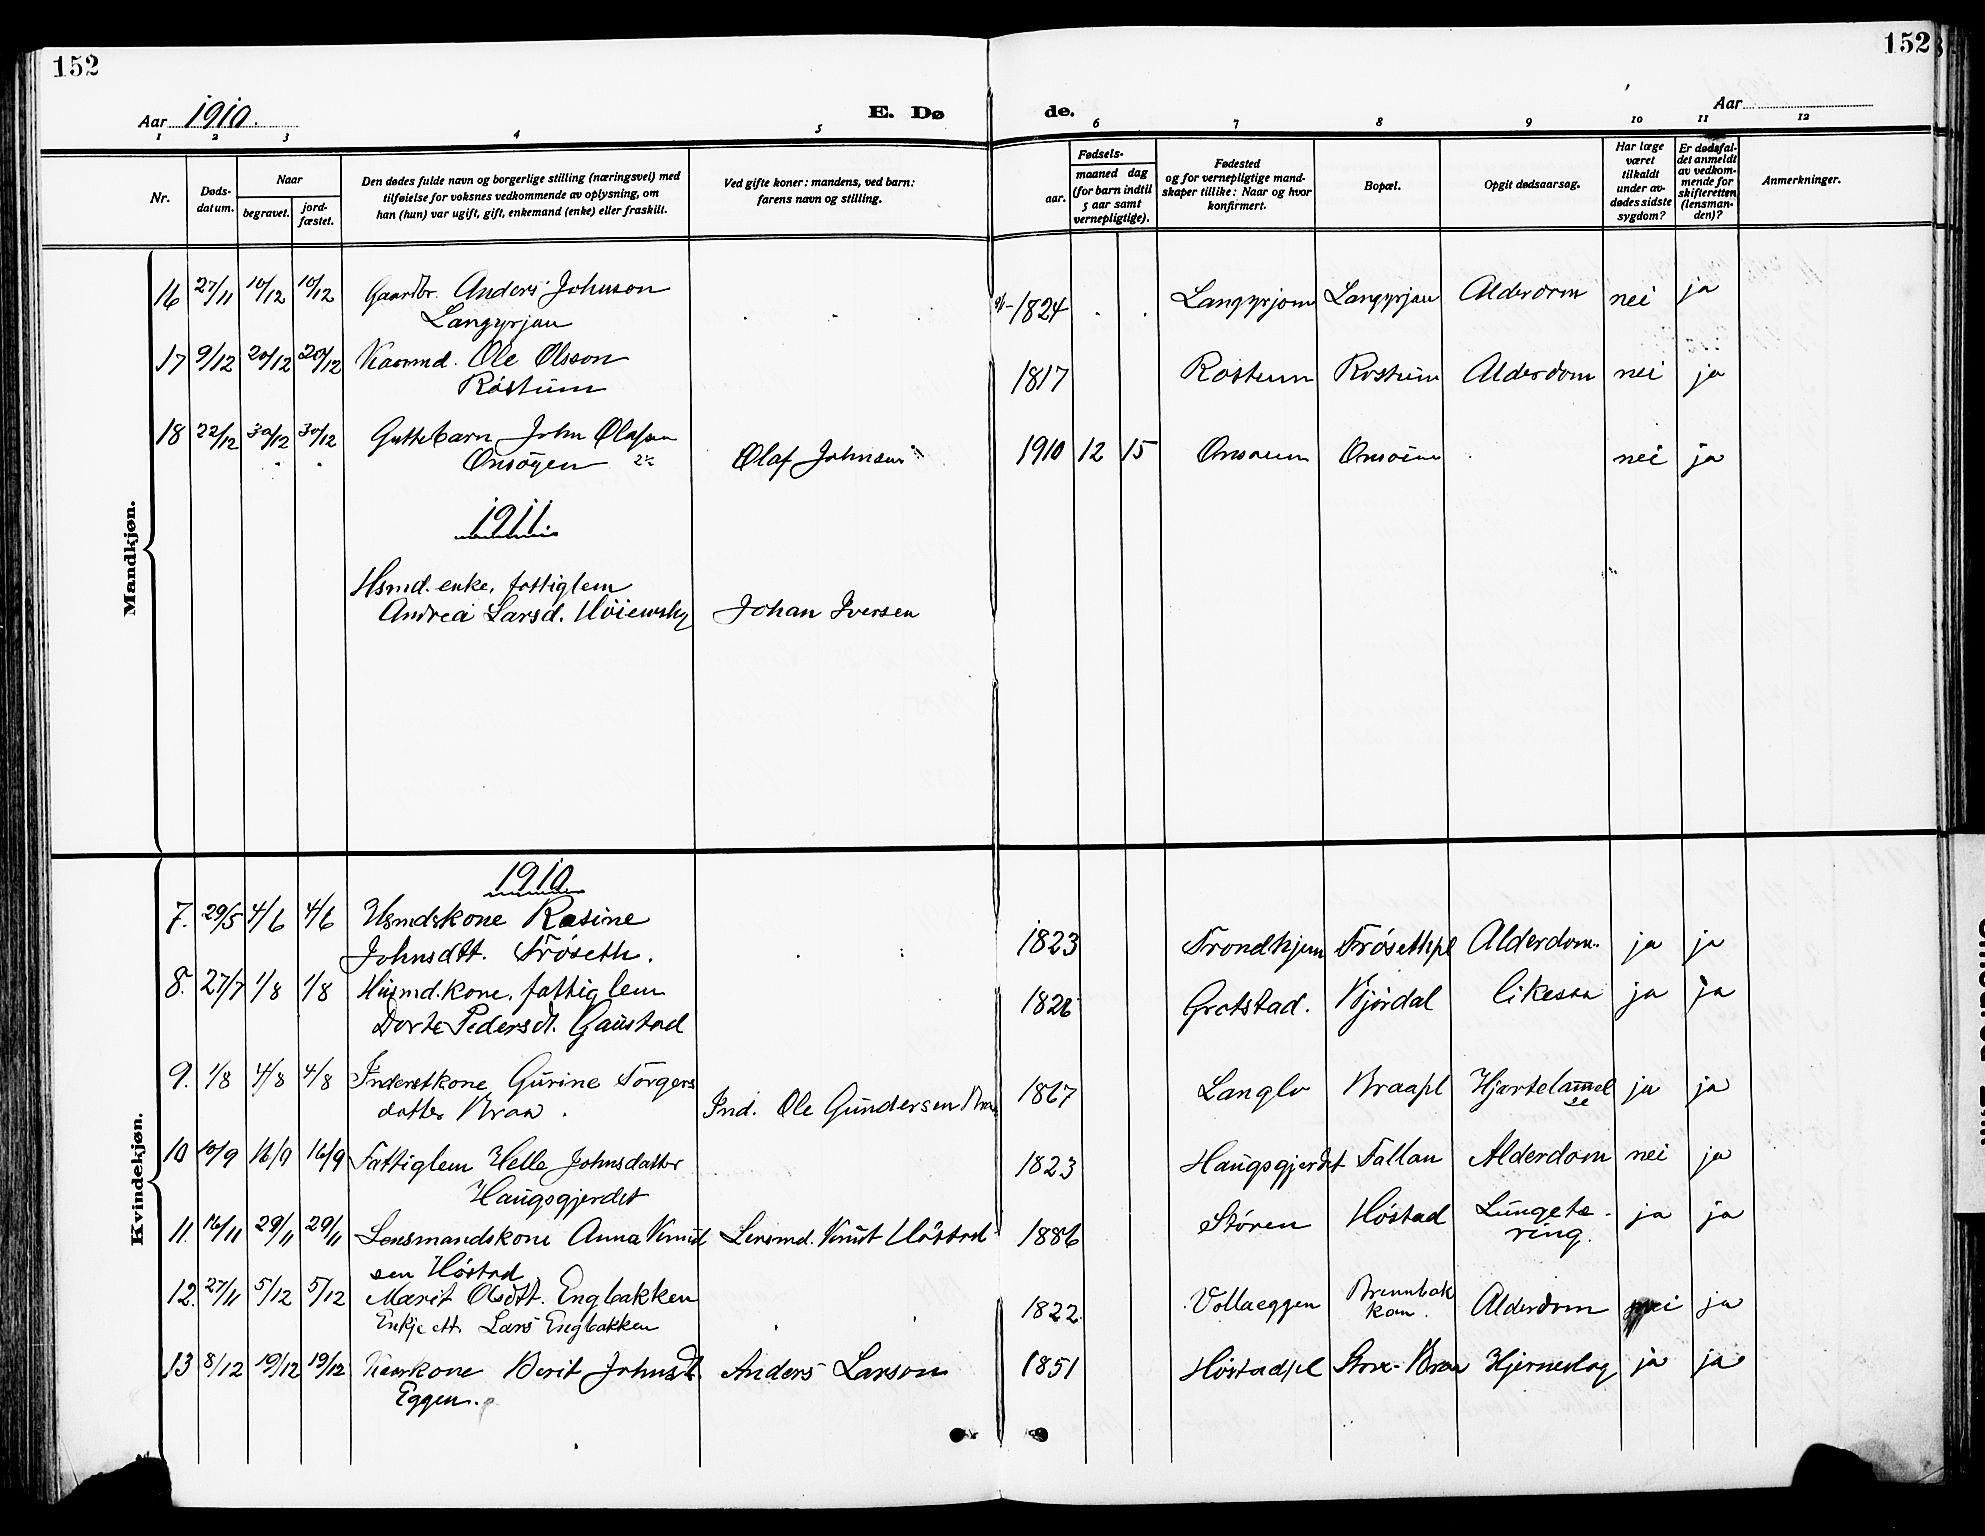 152
152
Aar 1910.
E. Døde.
Aar
1 2 3 4 5 6 7 8 9 10 11 12
Nr.
Døds-datum.
Naar
begravet.
jord-fæstet.
Den dødes fulde navn og borgerlige stilling (næringsvei) med
tilføielse for voksnes vedkommende av oplysning, om
han (hun) var ugift, gift, enkemand (enke) eller fraskilt.
Ved gifte koner: mandens, ved barn:
farens navn og stilling.
Fødsels-
aar.
maaned dag
(for barn indtil
5 aar samt
vernepligtige).
Fødested
og for vernepligtige mand-
skaper tillike: Naar og hvor
konfirmert.
Bopæl.
Opgit dødsaarsag.
Har læge
været
tilkaldt
under av-
dødes sidste
sygdom?
Er dødsfal-
det anmeldt
av vedkom-
mende for
skifteretten
(lensman-
den)?
Anmerkninger.
Mandkjøn.
16 27/11 10/12 10/12 Gaardbr. Anders Johnson 1824 Langyrjom Langyrjau Alderdom nei ja
Langyrjau
17 9/12 20/12 20/12 Kaarmd. Ole Olsson 1817 Røstum Røstum Alderdom nei ja
Røstum
18 22/12 30/12 30/12 Guttebarn John Olafson Olaf Johnsen 1910 12 15 Onsøien Onsøien nei ja
Onsøyen
1911.
Hsmd. enke, fattiglem
Andrea Larsd. Johan Iversen
Kvindekjøn.
1910
7. 29/5 4/6 4/6 Husmdskone Rasine 1823 Trondhjem Frøsethpl Alderdom. ja ja
Johnsdtt. Frøseth.
8. 27/7 1/8 1/8 Husmd.kone, fattiglem Grotstad. Bjørdal likesaa ja ja
Dorte Pedersdt. Gaustad
9. 1/8 4/8 4/8 Inderstkone Gurine Torgers Ind. Ole Gundersen Braa 1867 Langlo Braapl Hjertelammelse ja ja
datter Braa.
10 10/9 16/9 16/9 Fattiglem Helle Johnsdatter 1823 Haugsgjerdet Fallan Alderdom nei ja
Haugsgjerdet
11. 16/11 29/11 29/11 Lensmandskone Anna Knud Lensmd. Knut Høstad 1886 Støren Høstad Lungetæ- ja ja
sen Høstad ring.
12. 27/11 5/12 5/12 Marit Olsdtt. Engbakken 1822 Vollaeggen Brennbak Alderdom nei ja
Enkje ett. Lars Engbakken kan.
13 8/12 19/12 19/12 Kaarkone Berit Johnsdt. Anders Larson 1851 Høstadpl Store-Braa Hjerneslag ja ja
Eggen.